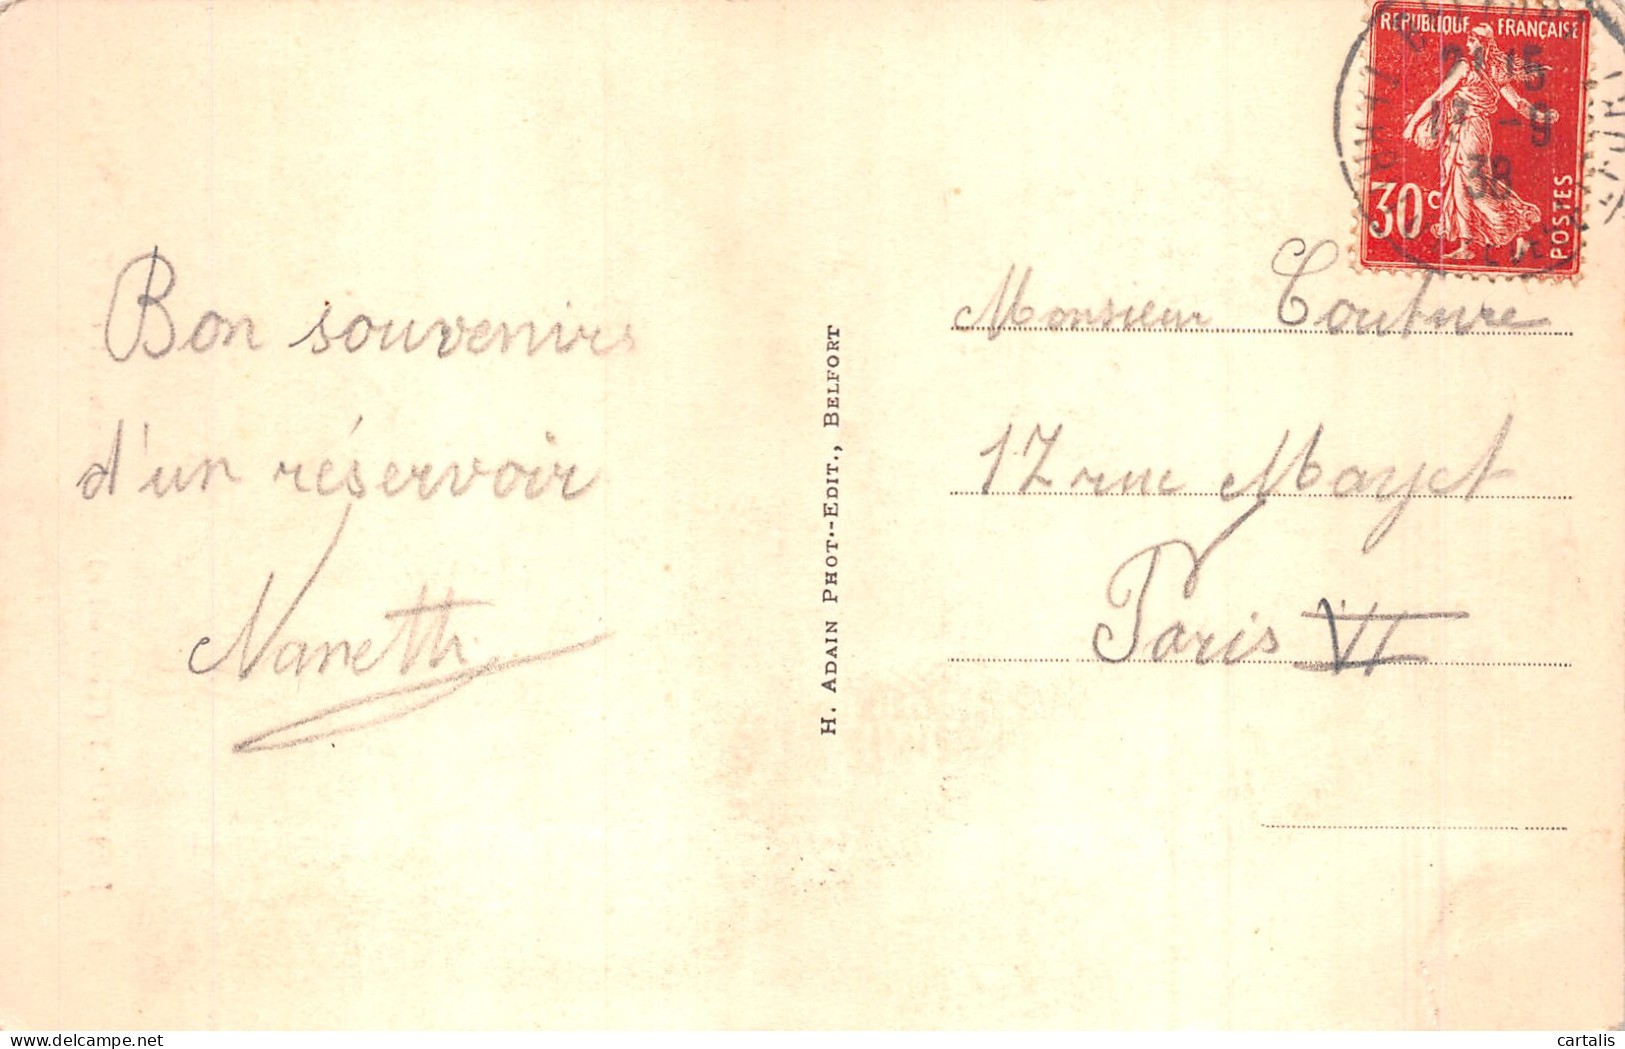 Bon souvenirs
d'un réservoir
Nanetti
H. ADAIN PHOT.-EDIT., BELFORT
REPUBLIQUE FRANÇAISE
30c
POSTES
21 15
-9
38
Monsieur Couture
17 rue Mayet
Paris VI
cartalis